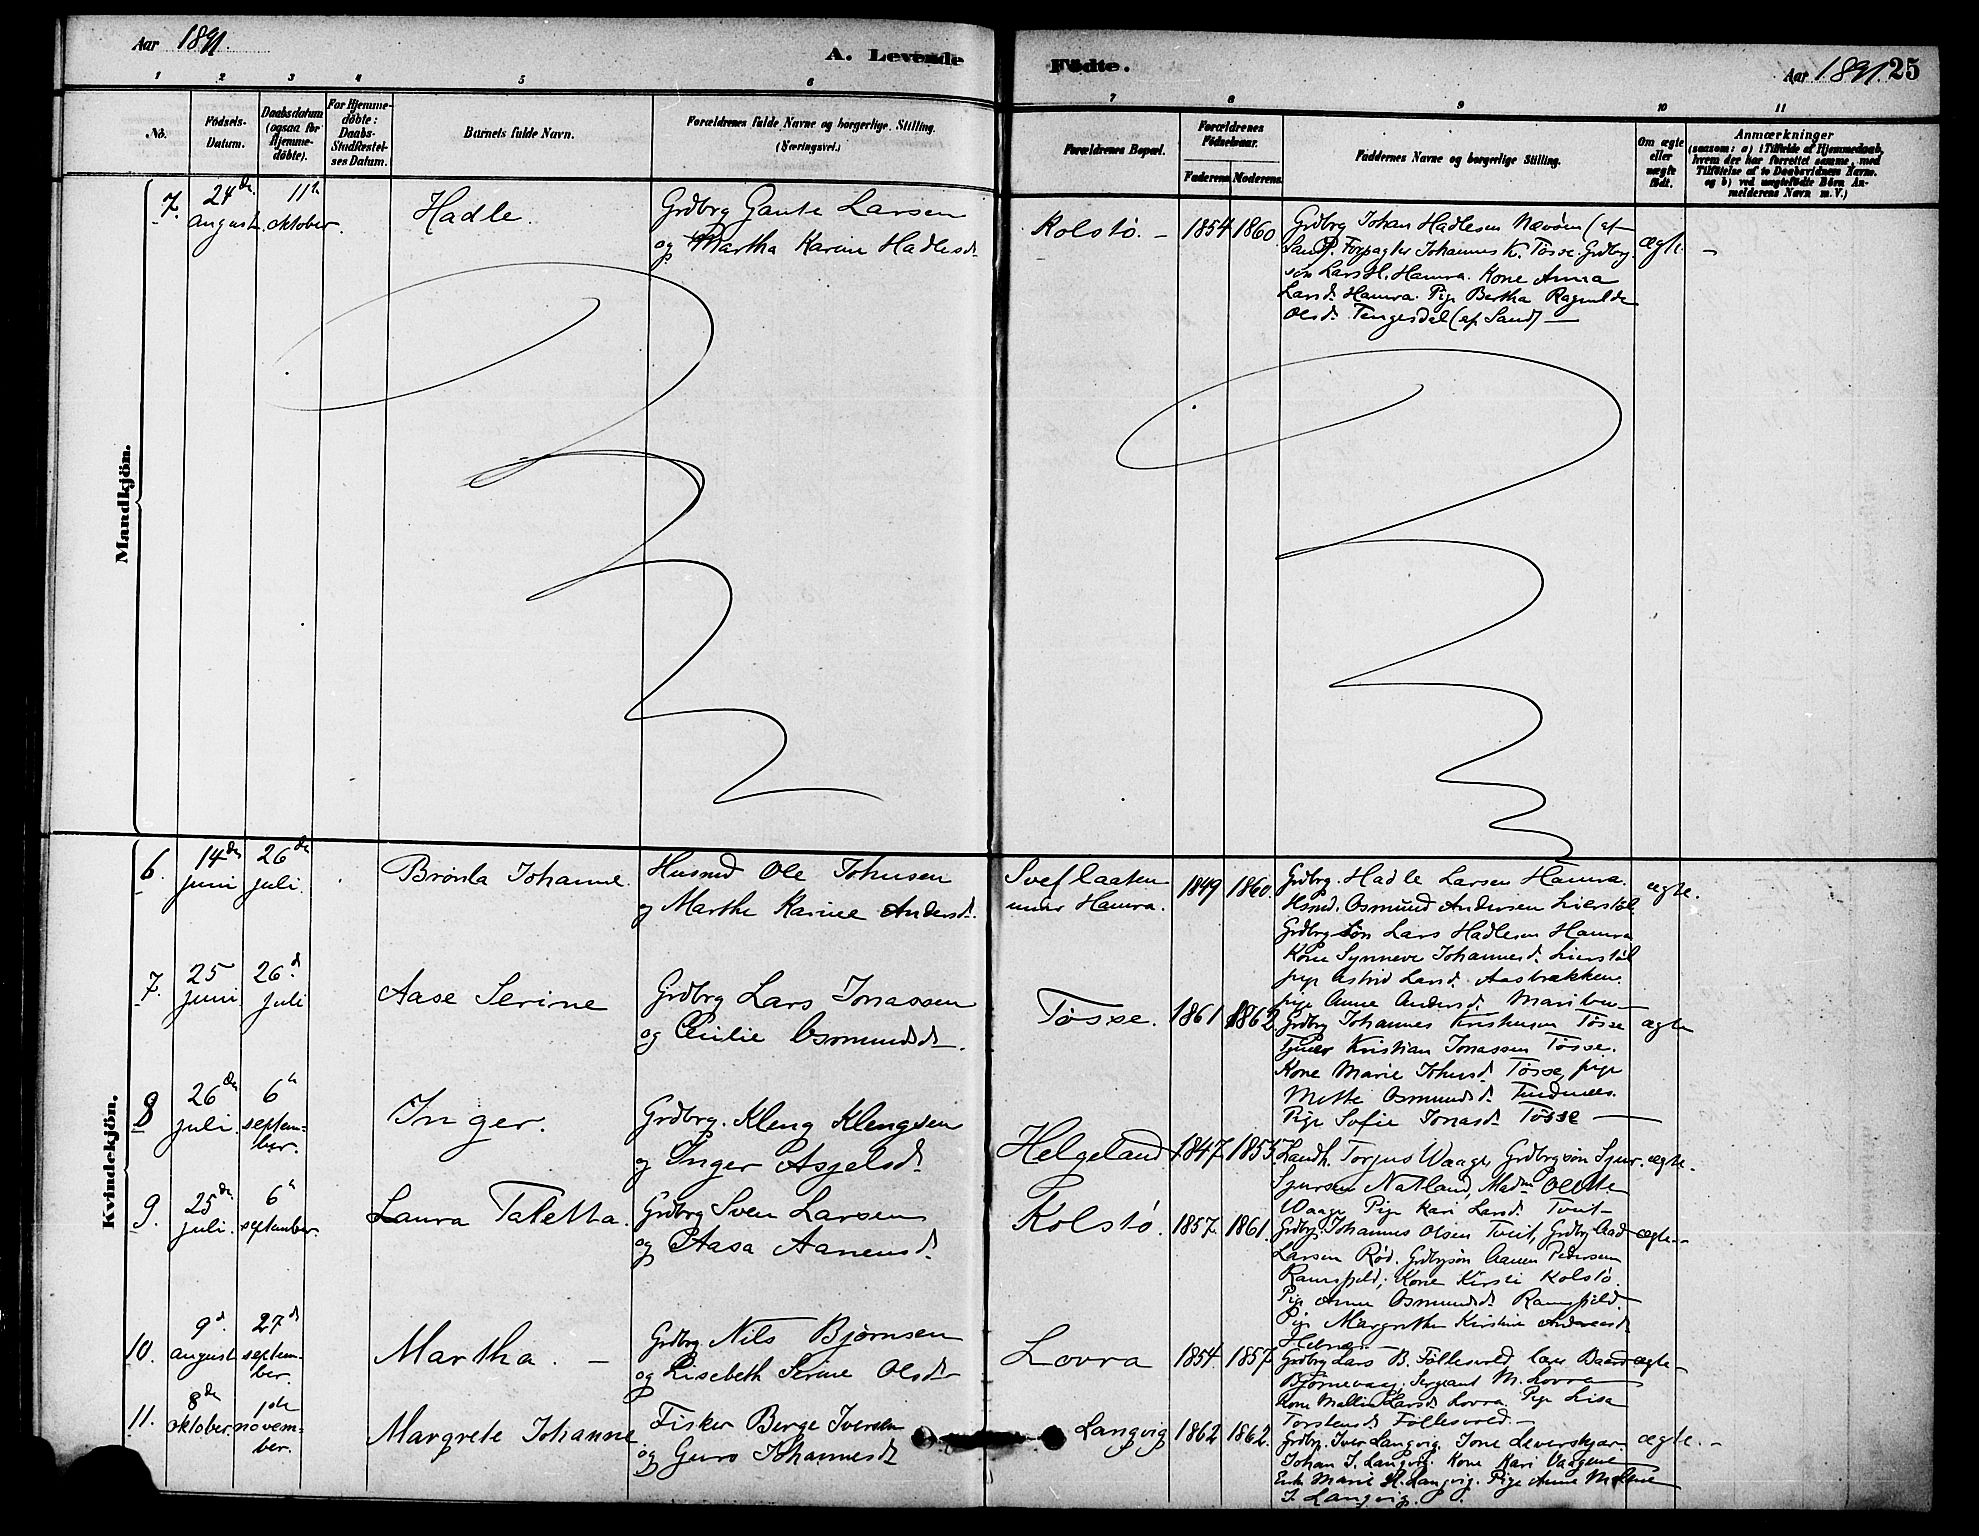 Aar 1891.
A. Levende Födte.
Aar 1891. 25
1 2 3 4 5 6 7 8 9 10 11
No.
Födsels-Datum.
Daabsdatum (ogsaa for Hjemme-döbte).
For Hjemme-döbte: Daabs-Stadfæstel-ses Datum.
Barnets fulde Navn.
Forældrenes fulde Navne og borgerlige Stilling.
(Næringsvei.)
Forældrenes Bopæl.
Forældrenes Födselsaar.
Faderens Moderens.
Faddernes Navne og borgerlige Stilling.
Om ægte eller uægte födt.
Anmærkninger
(saasom: a) i Tilfælde af Hjemmedaab,
hvem der har forrettet samme, med
Tilföielse af to Daabsvidners Navne,
og b) ved uægtefödte Börn An-
melderens Navn m. V.)
Mandkjön.
7. 24de august. 11te oktober. Hadle.
Grdbrg Gaute Larsen
og Martha Karine Hadlesdr
Kolstö. - 1854 1860
Grdbrg Johan Hadlesen Nævöen (af
Sand). Forpagter Johannes K. Tösse. Grdbrg-
sön Lars H. Hamra. Kone Anna
Larsd. Hamra. Pige Bertha Ragnilda
Olsd. Tengesdal (af Sand) —
ægte. -
Kvindekjön.
6. 14de juni 26de juli. Johanne.
Husmd Ole Johnsen
og Marthe Karine Andersd.
under Hamra. 1849 1860.
Grdbrg. Hadle Larsen Hamra.
Hsmd. Osmund Andersen Lierstöl
Grdbrg Sön Lars Hadlesen Hamra
Kone Synneve Johannesd. Lierstöl
pige Astrid Larsd. Aasbrekken.
pige Anne Andersd.
ægte.
7. 25 juni. 26d juli Aase Serine
Grdbrg Lars Jonassen
og Cecilie Osmundsd.
Tösse. 1861 1862
Grdbrg Johannes Tösse
Tjener Kristian Jonassen Tösse.
Kone Marie Johnsd. Tösse, pige
Mette Osmundsd.
Pige Sofie Jonasd. Tösse —
ægte
8 26de juli. 6te septem-ber. Inger.
Grdbrg. Kleng Klengsen
og Inger Asgelsd.
Helgeland 1847 1853
Landh. Torjus Waage, Grdbrgsön Sjur
Sjursen Natland, Madm Olette
Waage Pige Kari Larsd. Tveit
ægte.
9. 25de juli. 6te september. Laura Taletta.
Grdbrg Sven Larsen
og Aasa Aanensd.
Kolstö. 1857. 1861.
Grdbrg. Johannes Olsen Tveit, Grdbrg Aad
Larsen Röd. Grdbrgsön Aanen Pedersen
Ramsfjeld; Kone Kirsti Kolstö.
Pige Anna Osmundsd. Ramsfjeld.
Pige Margrethe Kirstine Andreasd.
Hebnes. —
ægte.
10. 9d. august 27d septem-ber. Martha. -
Grdbrg. Nils Björnsen
og Lisebeth Serine Olsdr
Lovra 1854. 1857
Grdbrg Lars B. Föllesvold,
Sergeant M. Lovra
Kone Larsd. Lovra. Pige Lisa
Torstensd. Föllesvold. —
ægte
11. 8de oktober. 1ste novem-ber. Margrete Johanne
Fisker Berge Iversen
og Guro Johannesdr
Langvig 1862 1862.
Grdbrg. Iver Langvig.
Johan I. Langvig. Kone Kari Vaagene
Enke Marie H. Langvig. Pige Anne Malene
I. Langvig.
ægte. -